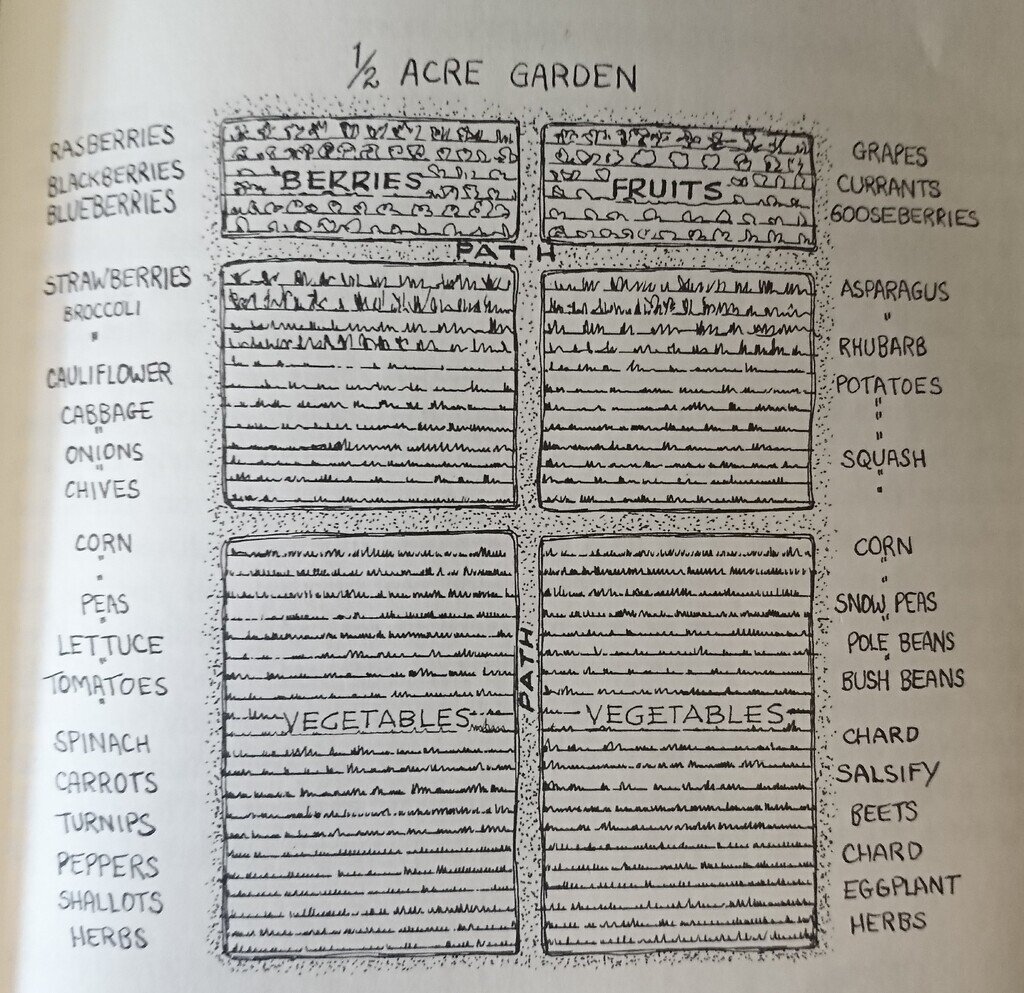 ½ ACRE GARDEN
RASBERRIES
BLACKBERRIES
BLUEBERRIES
BERRIES
FRUITS
GRAPES
CURRANTS
GOOSEBERRIES
PATH
STRAWBERRIES
BROCCOLI
"
CAULIFLOWER
CABBAGE
"
ONIONS
"
CHIVES
ASPARAGUS
"
RHUBARB
POTATOES
"
"
"
SQUASH
"
"
CORN
"
"
PEAS
"
LETTUCE
"
TOMATOES
"
SPINACH
CARROTS
TURNIPS
PEPPERS
SHALLOTS
HERBS
VEGETABLES
PATH
VEGETABLES
CORN
"
"
SNOW PEAS
"
POLE BEANS
"
BUSH BEANS
CHARD
SALSIFY
BEETS
CHARD
EGGPLANT
HERBS